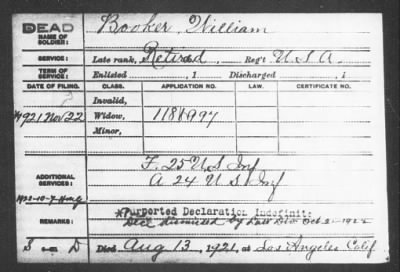 DEAD
NAME OF SOLDIER: Booker, William
SERVICE: Late rank, Retired Reg't U.S.A.
TERM OF SERVICE: Enlisted , 1 Discharged , 1
DATE OF FILING. CLASS. APPLICATION NO. LAW. CERTIFICATE NO.
Invalid,
1921 Nov 22 Widow, 1181997
Minor,
F. 25 U S Inf
ADDITIONAL SERVICES: A 24 U. S. Inf
*Purported Declaration Indefinite
REMARKS: Decl dismissed by Oct 2-1922
S D Died Aug 13, 1921, at Los Angeles Calif